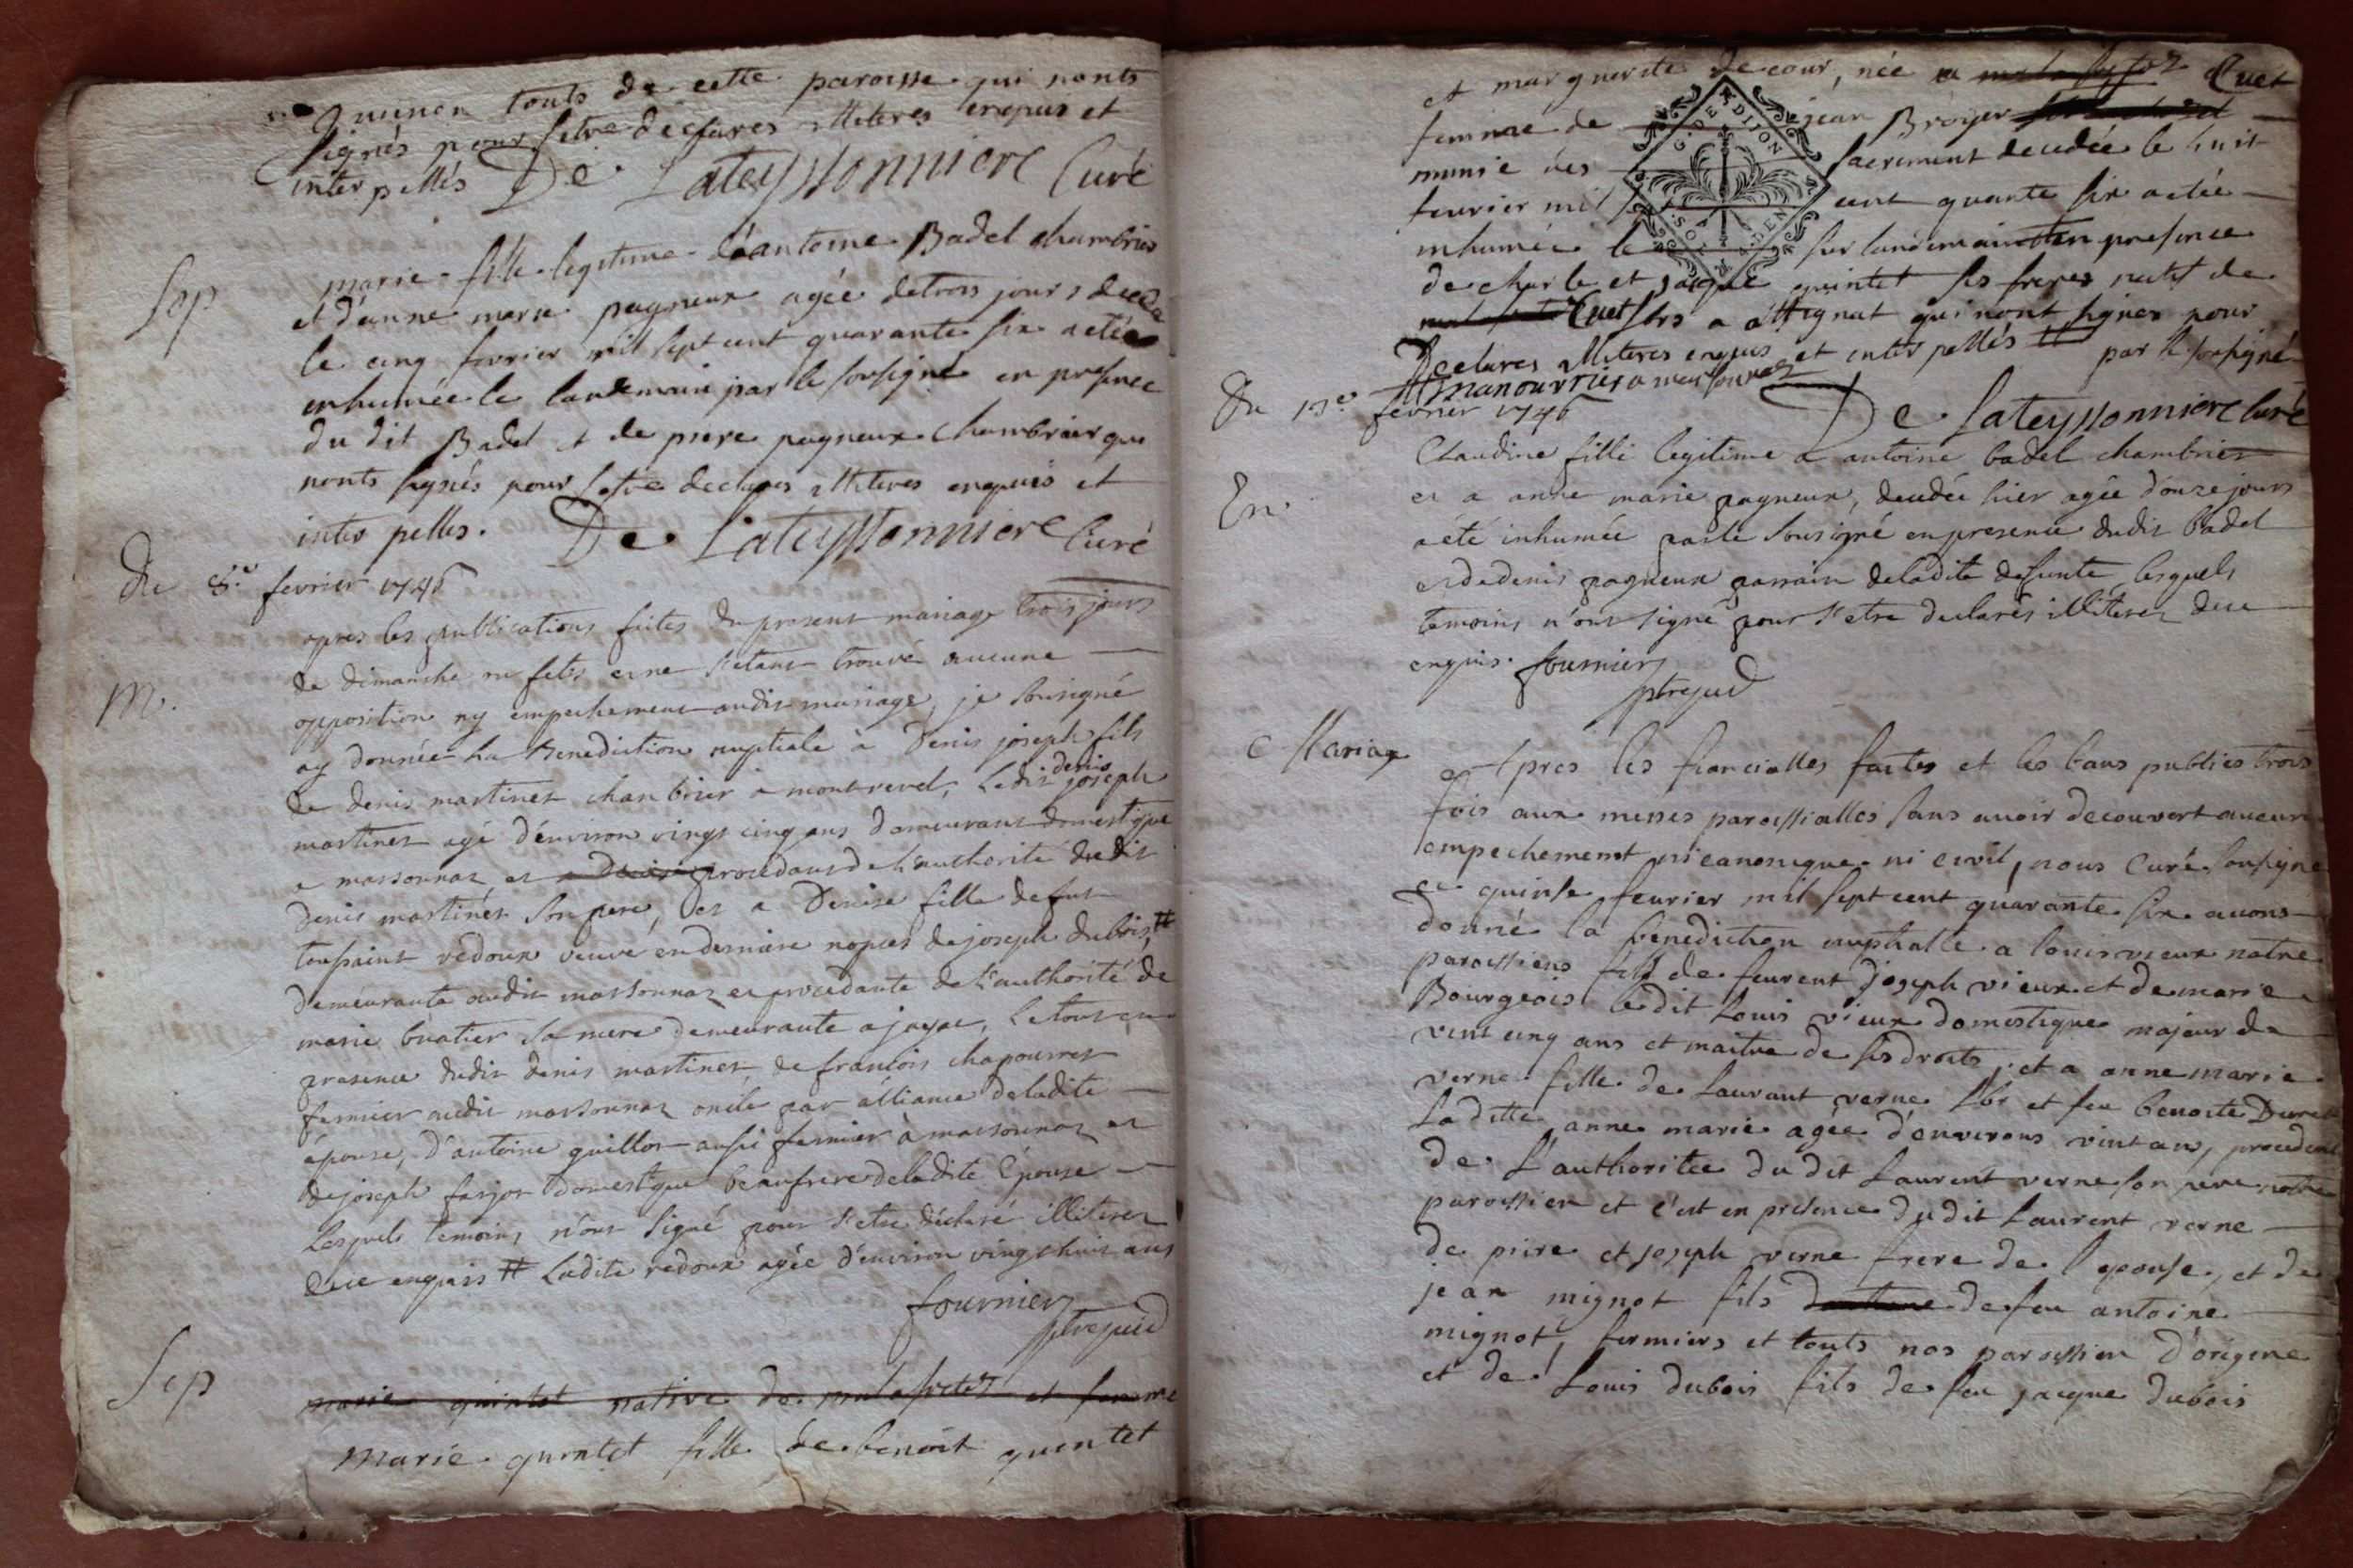 quinon touts de cette paroisse qui nonts
signés pour setre declares illiteres enquis et
inter pellés De Lateyssonniere Curé
Sep
marie fille legitime d'antoine Badel chambrier
et d'anne marie pagneux agée de trois jours deceda
le cinq fevrier mil sept cent quarante six a etée
inhumée le landemain par le sousigné en presence
du dit Badel et de piere pagneux chambrier qui
nonts signés pour setre declares illiteres enquis et
inter pellés. De Lateyssonniere Curé
Du 8.e fevrier 1746
M.
apres les publications faites du present mariage trois jours
de dimanche ou fetes et ne s'etant trouvé aucune
opposition ny empechement audit mariage, je sousigné
ay donnée la Benediction nuptiale à Denis joseph fils
de denis martinet chambrier a montrevel, Ledit denis joseph
martinet agé d'environ vingt cinq ans demeurant domestique
a marsonnaz et procedant de l'authorité dudit
denis martinet son pere, et a Denise fille de fut
toussaint redoux veuve en derniere nopces de joseph dubois, #
demeurante audit marsonnaz et procedante de l'authorité de
marie buatier sa mere demeurante a jayac, Le tout en
presence dudit denis martinet, de francois chapourret
fermier audit marsonnaz oncle par alliance de ladite
épouse, d'antoine guillot aussi fermier à marsonnaz et
de joseph farjot domestique beaufrere de ladite Epouse
Lesquels temoins n'ont signé pour s'etre déclaré illiteres
de ce enquis # Ladite redoux agée d'environ vingt huit ans
fournier
ptre jud
Sep
marie quintet native de malafretaz et femme
Marie quintet fille de benoit quentet
et marguerite Decour, née a Cuet
femme de jean Broyer
munie des sacrement decedée le huit
fevrier mil sept cent quarante six a etée
G. DE DIJON
SOLS
inhumée le surlandemain en presence
de charle et jaque quintet ses freres natif de
Cuet sbrs a attignat qui nont signer pour
Declares illiteres enquis et inter pellés # par le sousigné
# manouvrier a marsonnaz
Du 13.e fevrier 1746
De Lateyssonniere Curé
En.
Claudine fille legitime a antoine badel chambrier
et a anne marie pagneux, decedée hier agée d'onze jours
a été inhumée par le sousigné en presence dudit badel
et de denis pagneux parrain de ladite defunte, lesquels
temoins n'ont signé pour s'etre declarés illiteres de ce
enquis. fournier
ptre jud
Mariage
Apres les fiancialles faites et les bans publiés trois
fois aux messes paroissialles sans avoir decouvert aucun
empechement ni canonique ni civil, nous Curé sousigné
ce quinse fevrier mil sept cent quarante six avons
donné la benediction nuptialle a louis vieux notre
paroissiens fils de feu joseph vieux et de marie
Bourgeois ledit Louis vieux domestique majeur de
vint cinq ans et maitre de ses droits, et a anne marie
verne fille de Laurant verne lbr et feu benoite Duret
Laditte anne marie agée d'environs vint ans, procedent
de L'authoritee du dit Laurent verne son pere notre
paroissien et c'est en présence du dit Laurent verne
de piere et joseph verne frere de l'epouse, et de
jean mignot fils de feu antoine
mignot, fermiers et touts nos paroissien d'origine
et de Louis dubois fils de feu jacque dubois